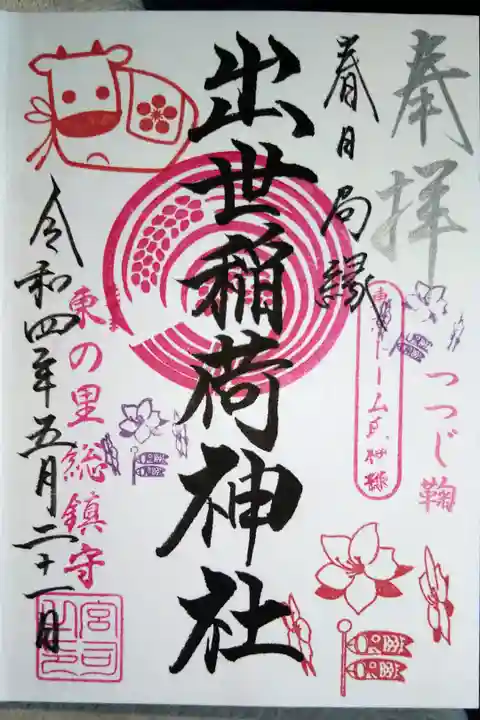 奉拝
つつじ鞠
春日局縁
出世稲荷神社
東の里総鎮守
令和四年五月二十一日